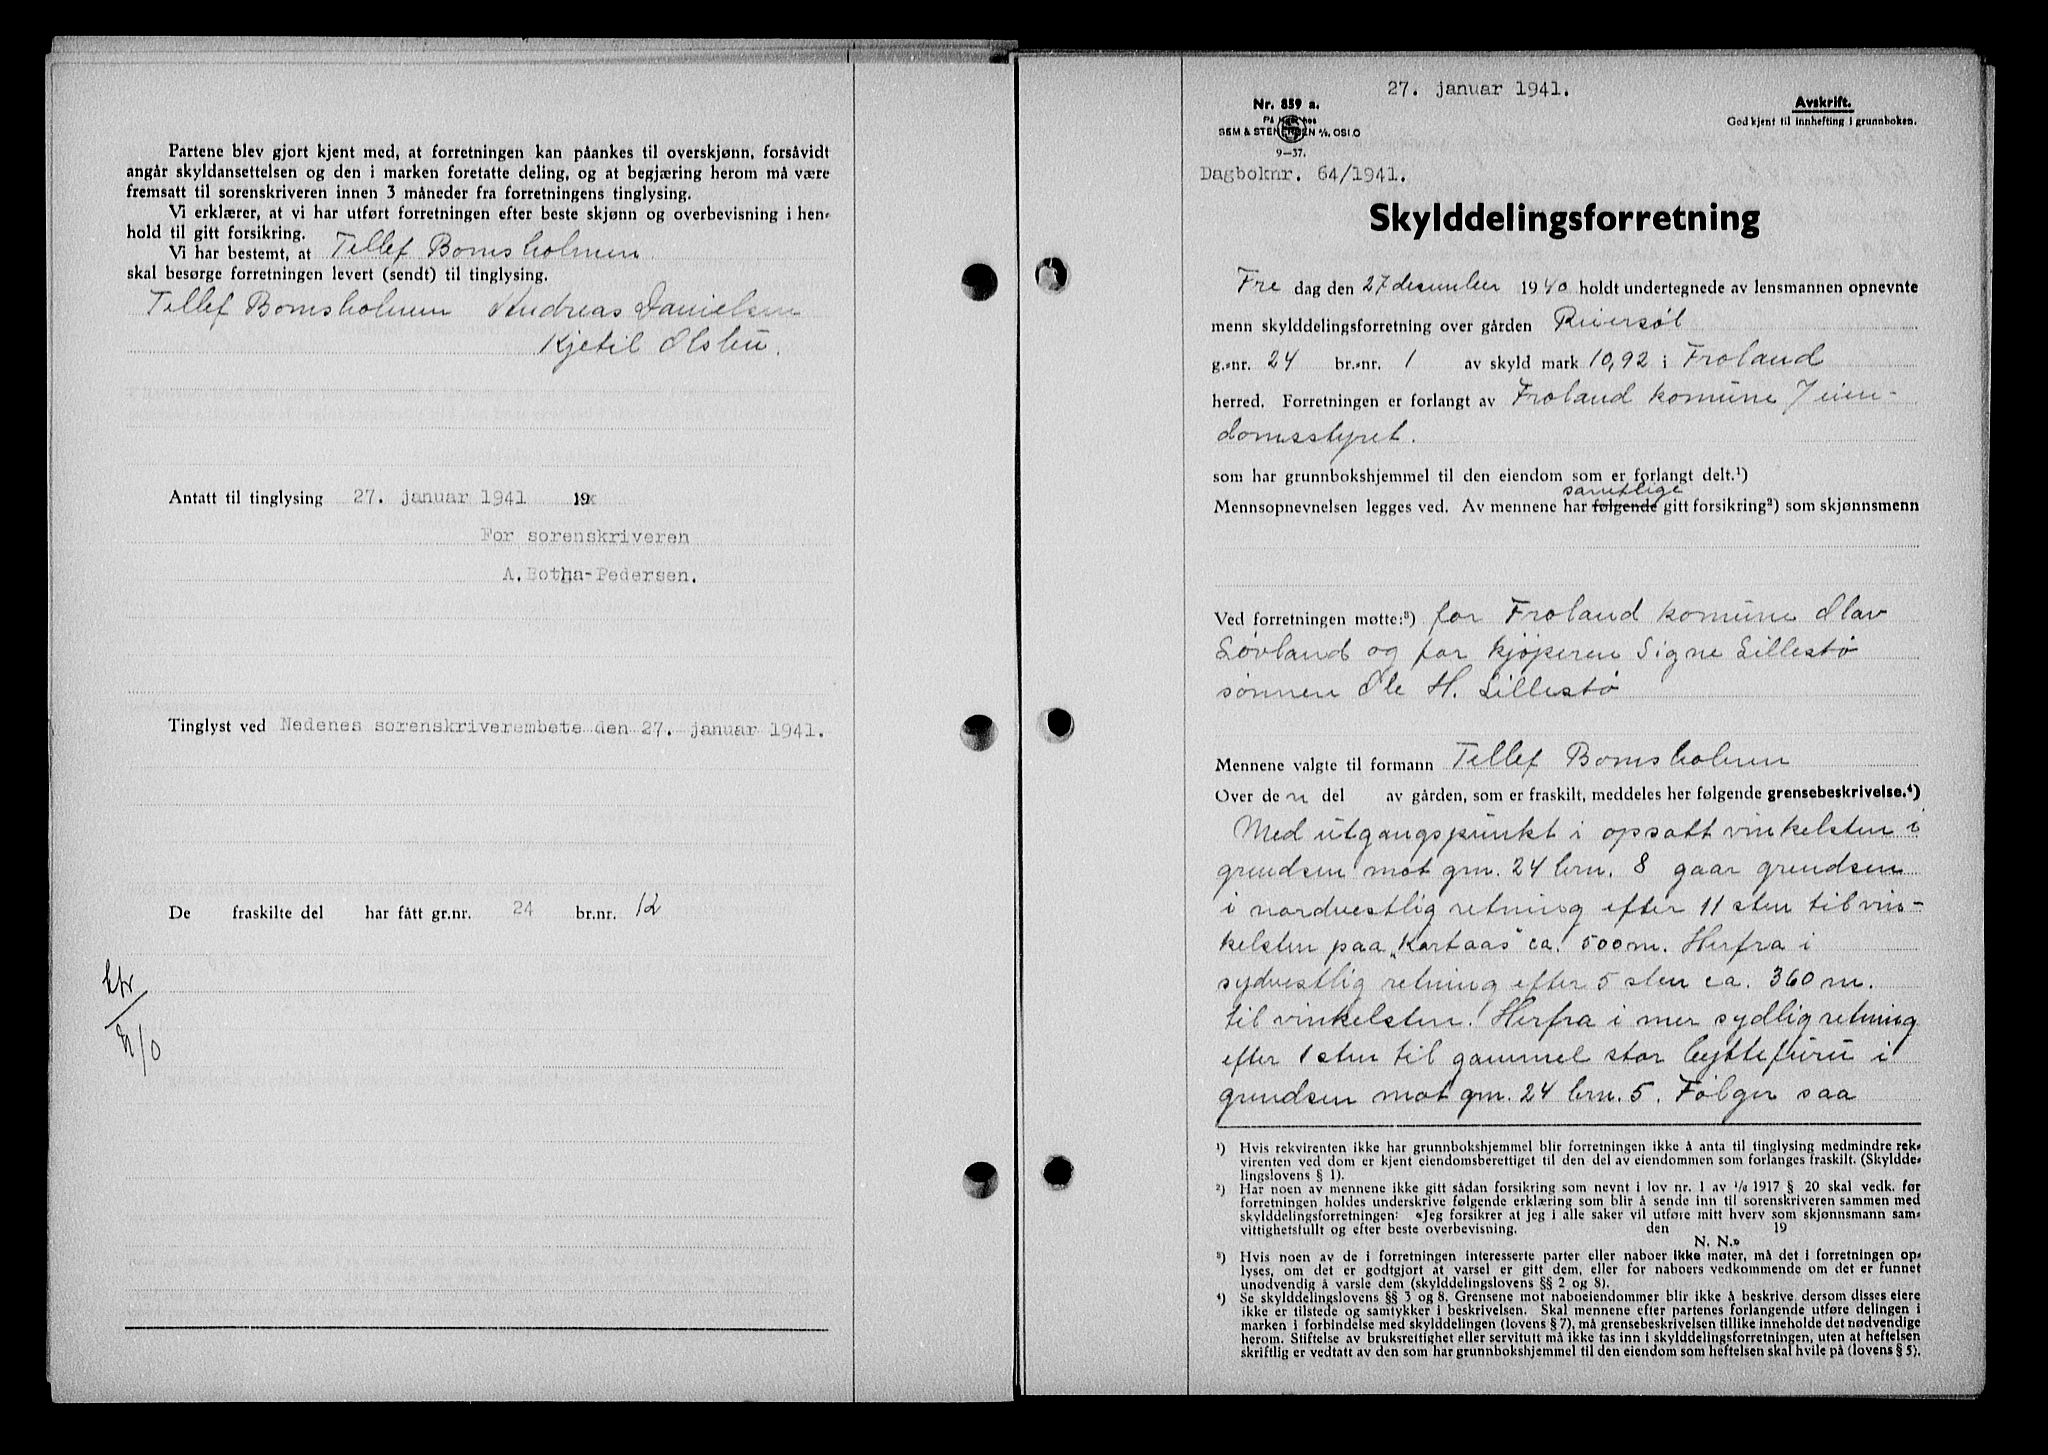 Partene blev gjort kjent med, at forretningen kan påankes til overskjønn, forsåvidt
angår skyldansettelsen og den i marken foretatte deling, og at begjæring herom må være
fremsatt til sorenskriveren innen 3 måneder fra forretningens tinglysing.
Vi erklærer, at vi har utført forretningen efter beste skjønn og overbevisning i hen-
hold til gitt forsikring.
Vi har bestemt, at Tellef Bomsholmen
skal besørge forretningen levert (sendt) til tinglysing.
Tellef Bomsholmen Andreas Danielsen
Kjetil Olsbu.
Antatt til tinglysing 27. januar 1941 19
For sorenskriveren
A. Botha-Pedersen.
Tinglyst ved Nedenes sorenskriverembete den 27. januar 1941.
De fraskilte del har fått gr.nr. 24 br.nr. 12
27. januar 1941.
Nr. 859 a.
SEM & STENERSEN A/S, OSLO
9—37.
Avskrift.
Godkjent til innhefting i grunnboken.
Dagboknr. 64/1941.
Skylddelingsforretning
Fre dag den 27 desember 1940 holdt undertegnede av lensmannen opnevnte
menn skylddelingsforretning over gården Reiersøl
g.-nr. 24 br.-nr. 1 av skyld mark 10,92 i Froland
herred. Forretningen er forlangt av Froland komune Jeien-
domsstyret.
som har grunnbokshjemmel til den eiendom som er forlangt delt.¹)
samtlige
Mennsopnevnelsen legges ved. Av mennene har følgende gitt forsikring²) som skjønnsmenn
Ved forretningen møtte:³) for Froland komune Olav
Løvland og for kjøperen Signe Lillestø
sønnen Ole H. Lillestø
Mennene valgte til formann Tellef Bomsholmen
Over den del av gården, som er fraskilt, meddeles her følgende grensebeskrivelse.⁴)
Med utgangspunkt i opsatt vinkelsten i
grendsen mot grn. 24 brn. 8 gaar grendsen
i nordvestlig retning efter 11 sten til vin-
kelsten paa „Kortaas" ca. 500 m. Herfra i
sydvestlig retning efter 5 sten ca. 360 m.
til vinkelsten. Herfra i mer sydlig retning
efter 1 sten til gammel stor byttefuru i
grendsen mot grn. 24 brn. 5. Følger saa
¹) Hvis rekvirenten ikke har grunnbokshjemmel blir forretningen ikke å anta til tinglysing medmindre rek-
virenten ved dom er kjent eiendomsberettiget til den del av eiendommen som forlanges fraskilt. (Skyldde-
lingslovens § 1).
²) Har noen av mennene ikke gitt sådan forsikring som nevnt i lov nr. 1 av 1/6 1917 § 20 skal vedk. før
forretningen holdes underskrive følgende erklæring som blir å sende inn til sorenskriveren sammen med
skylddelingsforretningen: «Jeg forsikrer at jeg i alle saker vil utføre mitt hverv som skjønnsmann sam-
vittighetsfullt og efter beste overbevisning. den 19
N. N.»
³) Hvis noen av de i forretningen interesserte parter eller naboer ikke møter, må det i forretningen op-
lyses, om det er godtgjort at varsel er gitt dem, eller for naboers vedkommende om det er funnet
unødvendig å varsle dem (skylddelingslovens §§ 2 og 8).
⁴) Se skylddelingslovens §§ 3 og 8. Grensene mot naboeiendommer blir ikke å beskrive, dersom disses eiere
ikke er tilstede og samtykker i beskrivelsen. Skal mennene efter partenes forlangende utføre delingen i
marken i forbindelse med skylddelingen (lovens § 7), må grensebeskrivelsen tillike inneholde det nødvendige
herom. Stiftelse av bruksrettighet eller servitutt må ikke tas inn i skylddelingsforretningen, uten at heftelsen
skriftlig er vedtatt av den som har grunnbokshjemmel til den eiendom som heftelsen skal hvile på (lovens § 5).